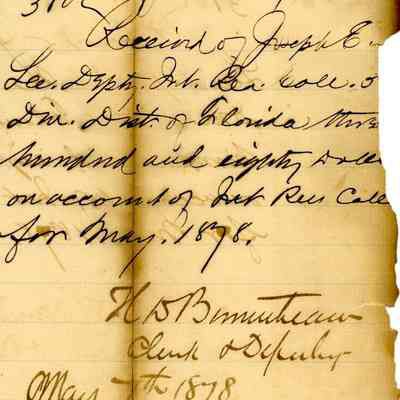 Received of Joseph E.
Lee. Depty. Int. Rev. Coll. 5
Div. Dist. of Florida three
hundred and eighty Doll
on account of Int Rev Coll
for May. 1878.
H D
Clerk & Deputy
May 7th 1878